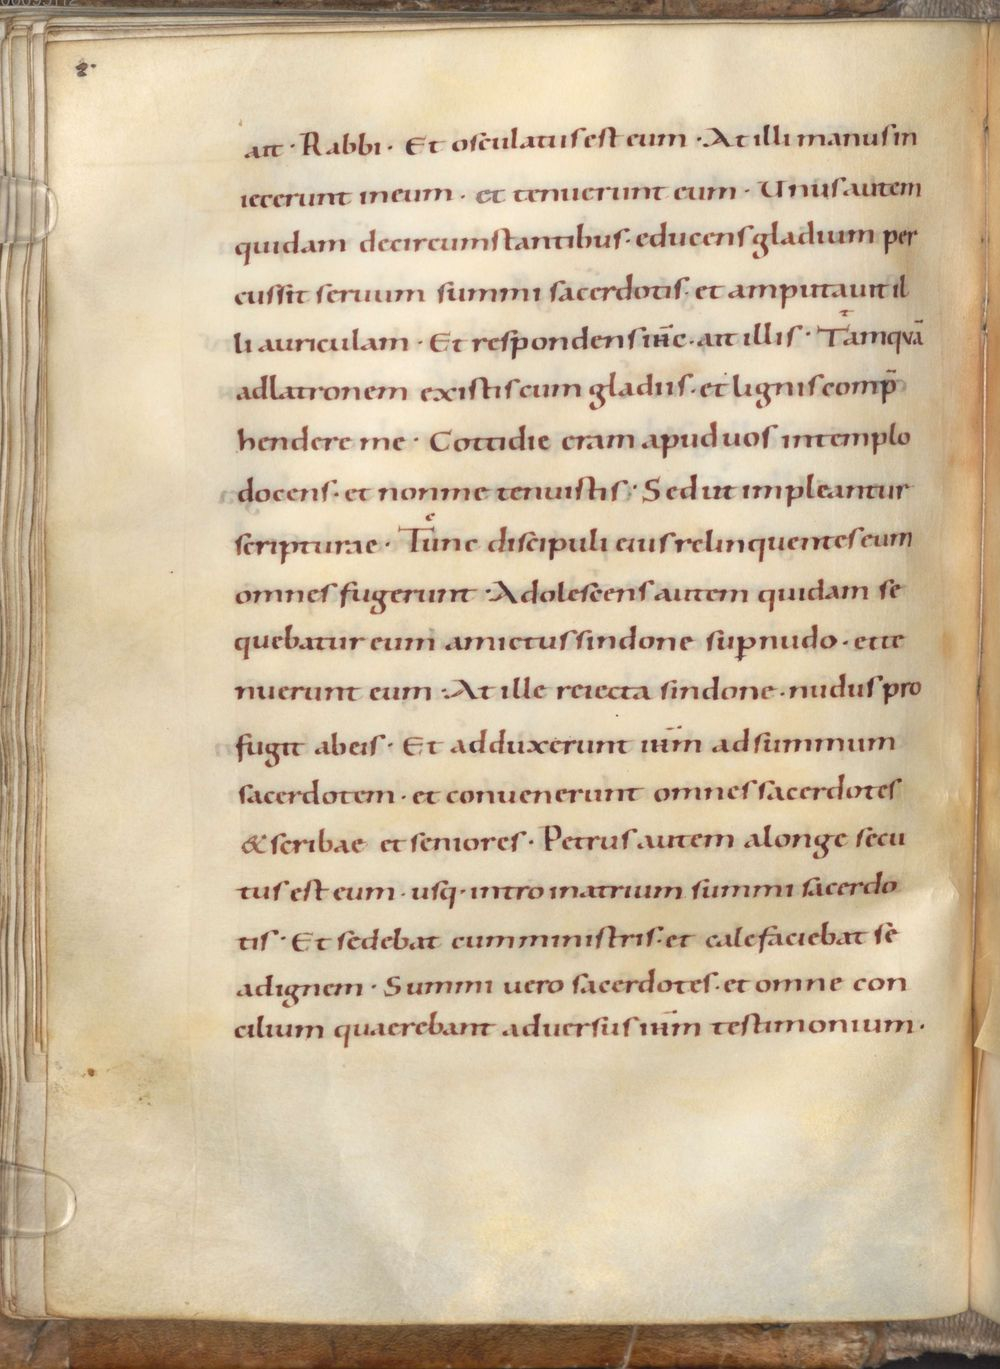 ait · Rabbi · Et osculatus est eum · At illi manus in
iecerunt in eum · et tenuerunt eum · Unus autem
quidam de circumstantibus · educens gladium per
cussit seruum summi sacerdotis · et amputauit il
li auriculam · Et respondens ih̄c · ait illis · Tamquā
ad latronem existis cum gladiis · et lignis comp̄
hendere me · Cottidie eram apud uos in templo
docens · et non me tenuistis · Sed ut impleantur
scripturae · Tunc discipuli eius relinquentes eum
omnes fugerunt · Adolescens autem quidam se
quebatur eum amictus sindone sup̱ nudo · et te
nuerunt eum · At ille reiecta sindone · nudus pro
fugit ab eis · Et adduxerunt ih̄m ad summum
sacerdotem · et conuenerunt omnes sacerdotes
& scribae et seniores · Petrus autem a longe secu
tus est eum · usq· intro in atrium summi sacerdo
tis · Et sedebat cum ministris · et calefaciebat se
ad ignem · Summi uero sacerdotes · et omne con
cilium quaerebant aduersus ih̄m testimonium ·